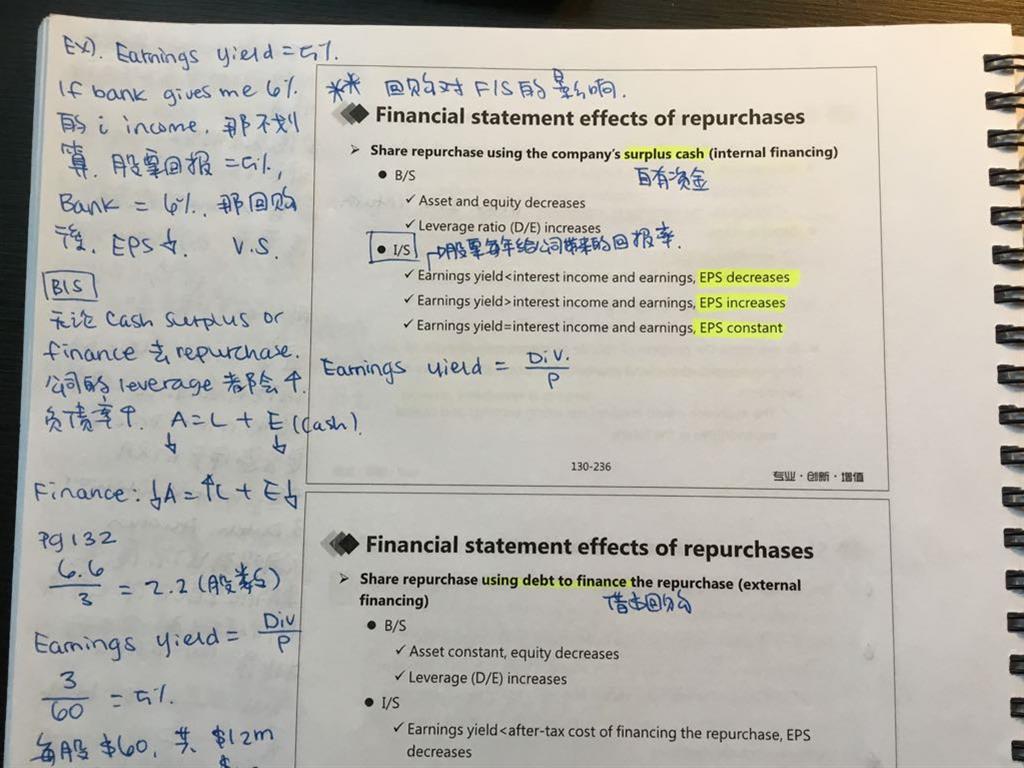 Ex). Earnings yield = 5%.
If bank gives me 6%
的 i income, 那不划
算. 股票回报 = 5%,
Bank = 6%. 那回购
後. EPS↓. V.S.
B/S
无论 cash surplus or
finance 去 repurchase.
公司的 leverage 都会↑.
负债率↑. A = L + E (Cash).
↓ ↓
Finance: ↓A = ↑L + E↓
Pg 132
6.6/3 = 2.2 (股数)
Earnings yield = Div/P
3/60 = 5%.
每股 $60, 共 $12m
** 回购对 F/S 的影响.
Financial statement effects of repurchases
➤ Share repurchase using the company's surplus cash (internal financing)
自有资金
● B/S
✓ Asset and equity decreases
✓ Leverage ratio (D/E) increases
● I/S 股票每年给公司带来的回报率.
✓ Earnings yield<interest income and earnings, EPS decreases
✓ Earnings yield>interest income and earnings, EPS increases
✓ Earnings yield=interest income and earnings, EPS constant
Earnings yield = Div./P
130-236
专业·创新·增值
Financial statement effects of repurchases
➤ Share repurchase using debt to finance the repurchase (external
financing)
借钱回购
● B/S
✓ Asset constant, equity decreases
✓ Leverage (D/E) increases
● I/S
✓ Earnings yield<after-tax cost of financing the repurchase, EPS
decreases